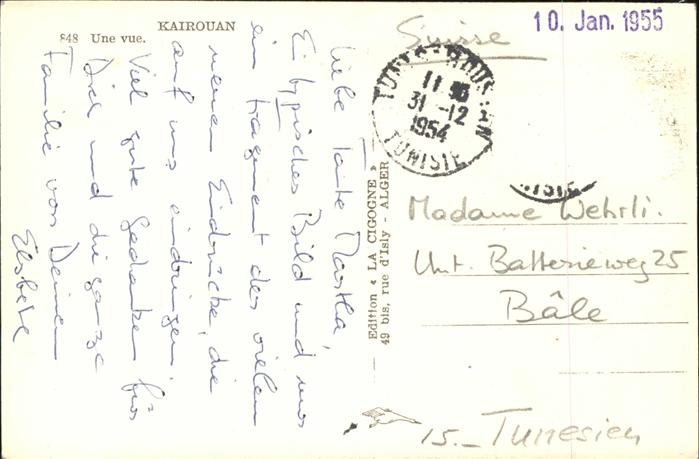 KAIROUAN
848 Une vue.
Liebe Tante Martha,
Ein typisches Bild und nur
ein Fragment des vielen
neuen Eindrücke, die
auf uns eindringen.
Viel gute Gedanken für
Dich und die ganze
Familie von Deinem
Elsbeth
Edition « LA CIGOGNE »
49 bis, rue d'Isly - ALGER
Suisse
10. Jan. 1955
TUNIS
11
31-12
1954
TUNISIE
Madame Wehrli.
Unt. Batterieweg 25
Bâle
15.- Tunesien